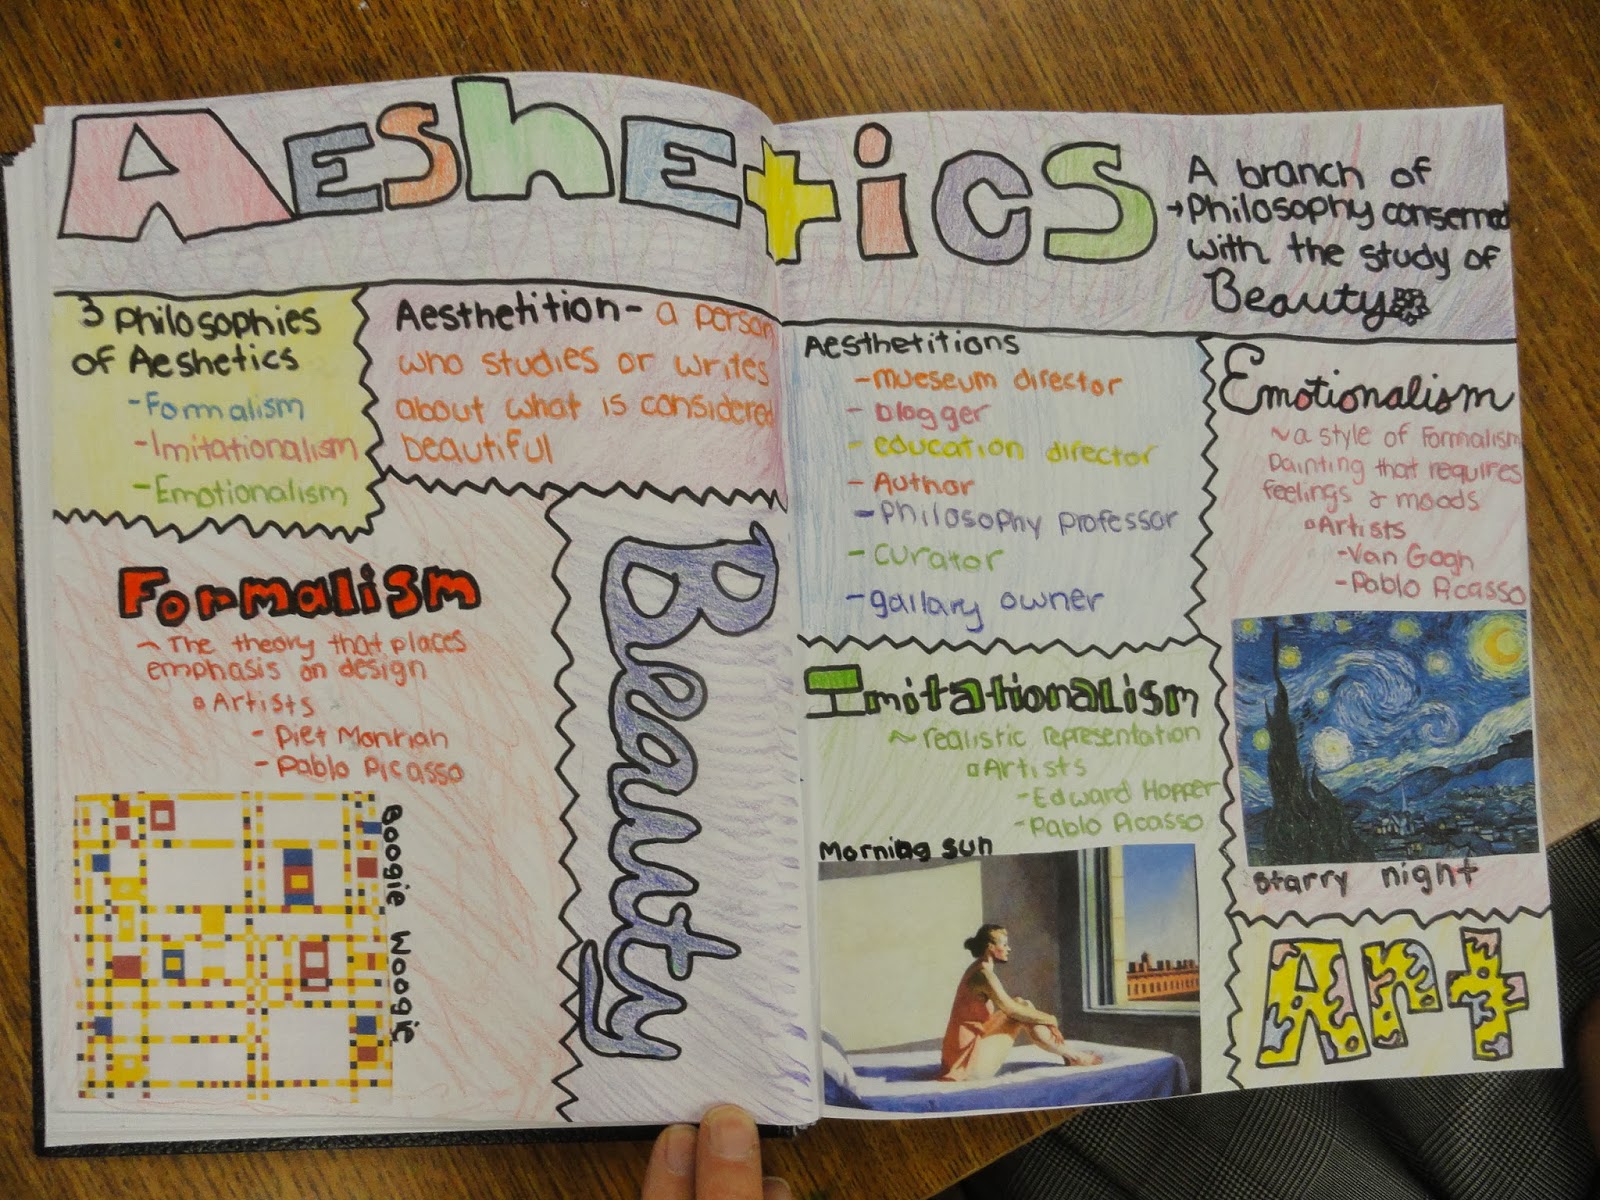 AesheEtics
A branch of
→Philosophy conserned
with the study of
Beauty
3 Philosophies
of Aeshetics
-Formalism
-Imitationalism
-Emotionalism
Aesthetition- a person
who studies or writes
about what is considered
beautiful
Formalism
~ The theory that places
emphasis on design
▫Artists
- Piet Monrian
- Pablo Picasso
Boogie Woogie
Beauty
Aesthetitions
-mueseum director
- blogger
- education director
- Author
- Philosophy professor
- curator
- gallary owner
Imitationalism
~ realistic representation
▫Artists
-Edward Hopper
-Pablo Picasso
Morning sun
Emotionalism
~a style of Formalism
Painting that requires
feelings & moods
▫Artists
-Van Gogh
-Pablo Picasso
starry night
Art